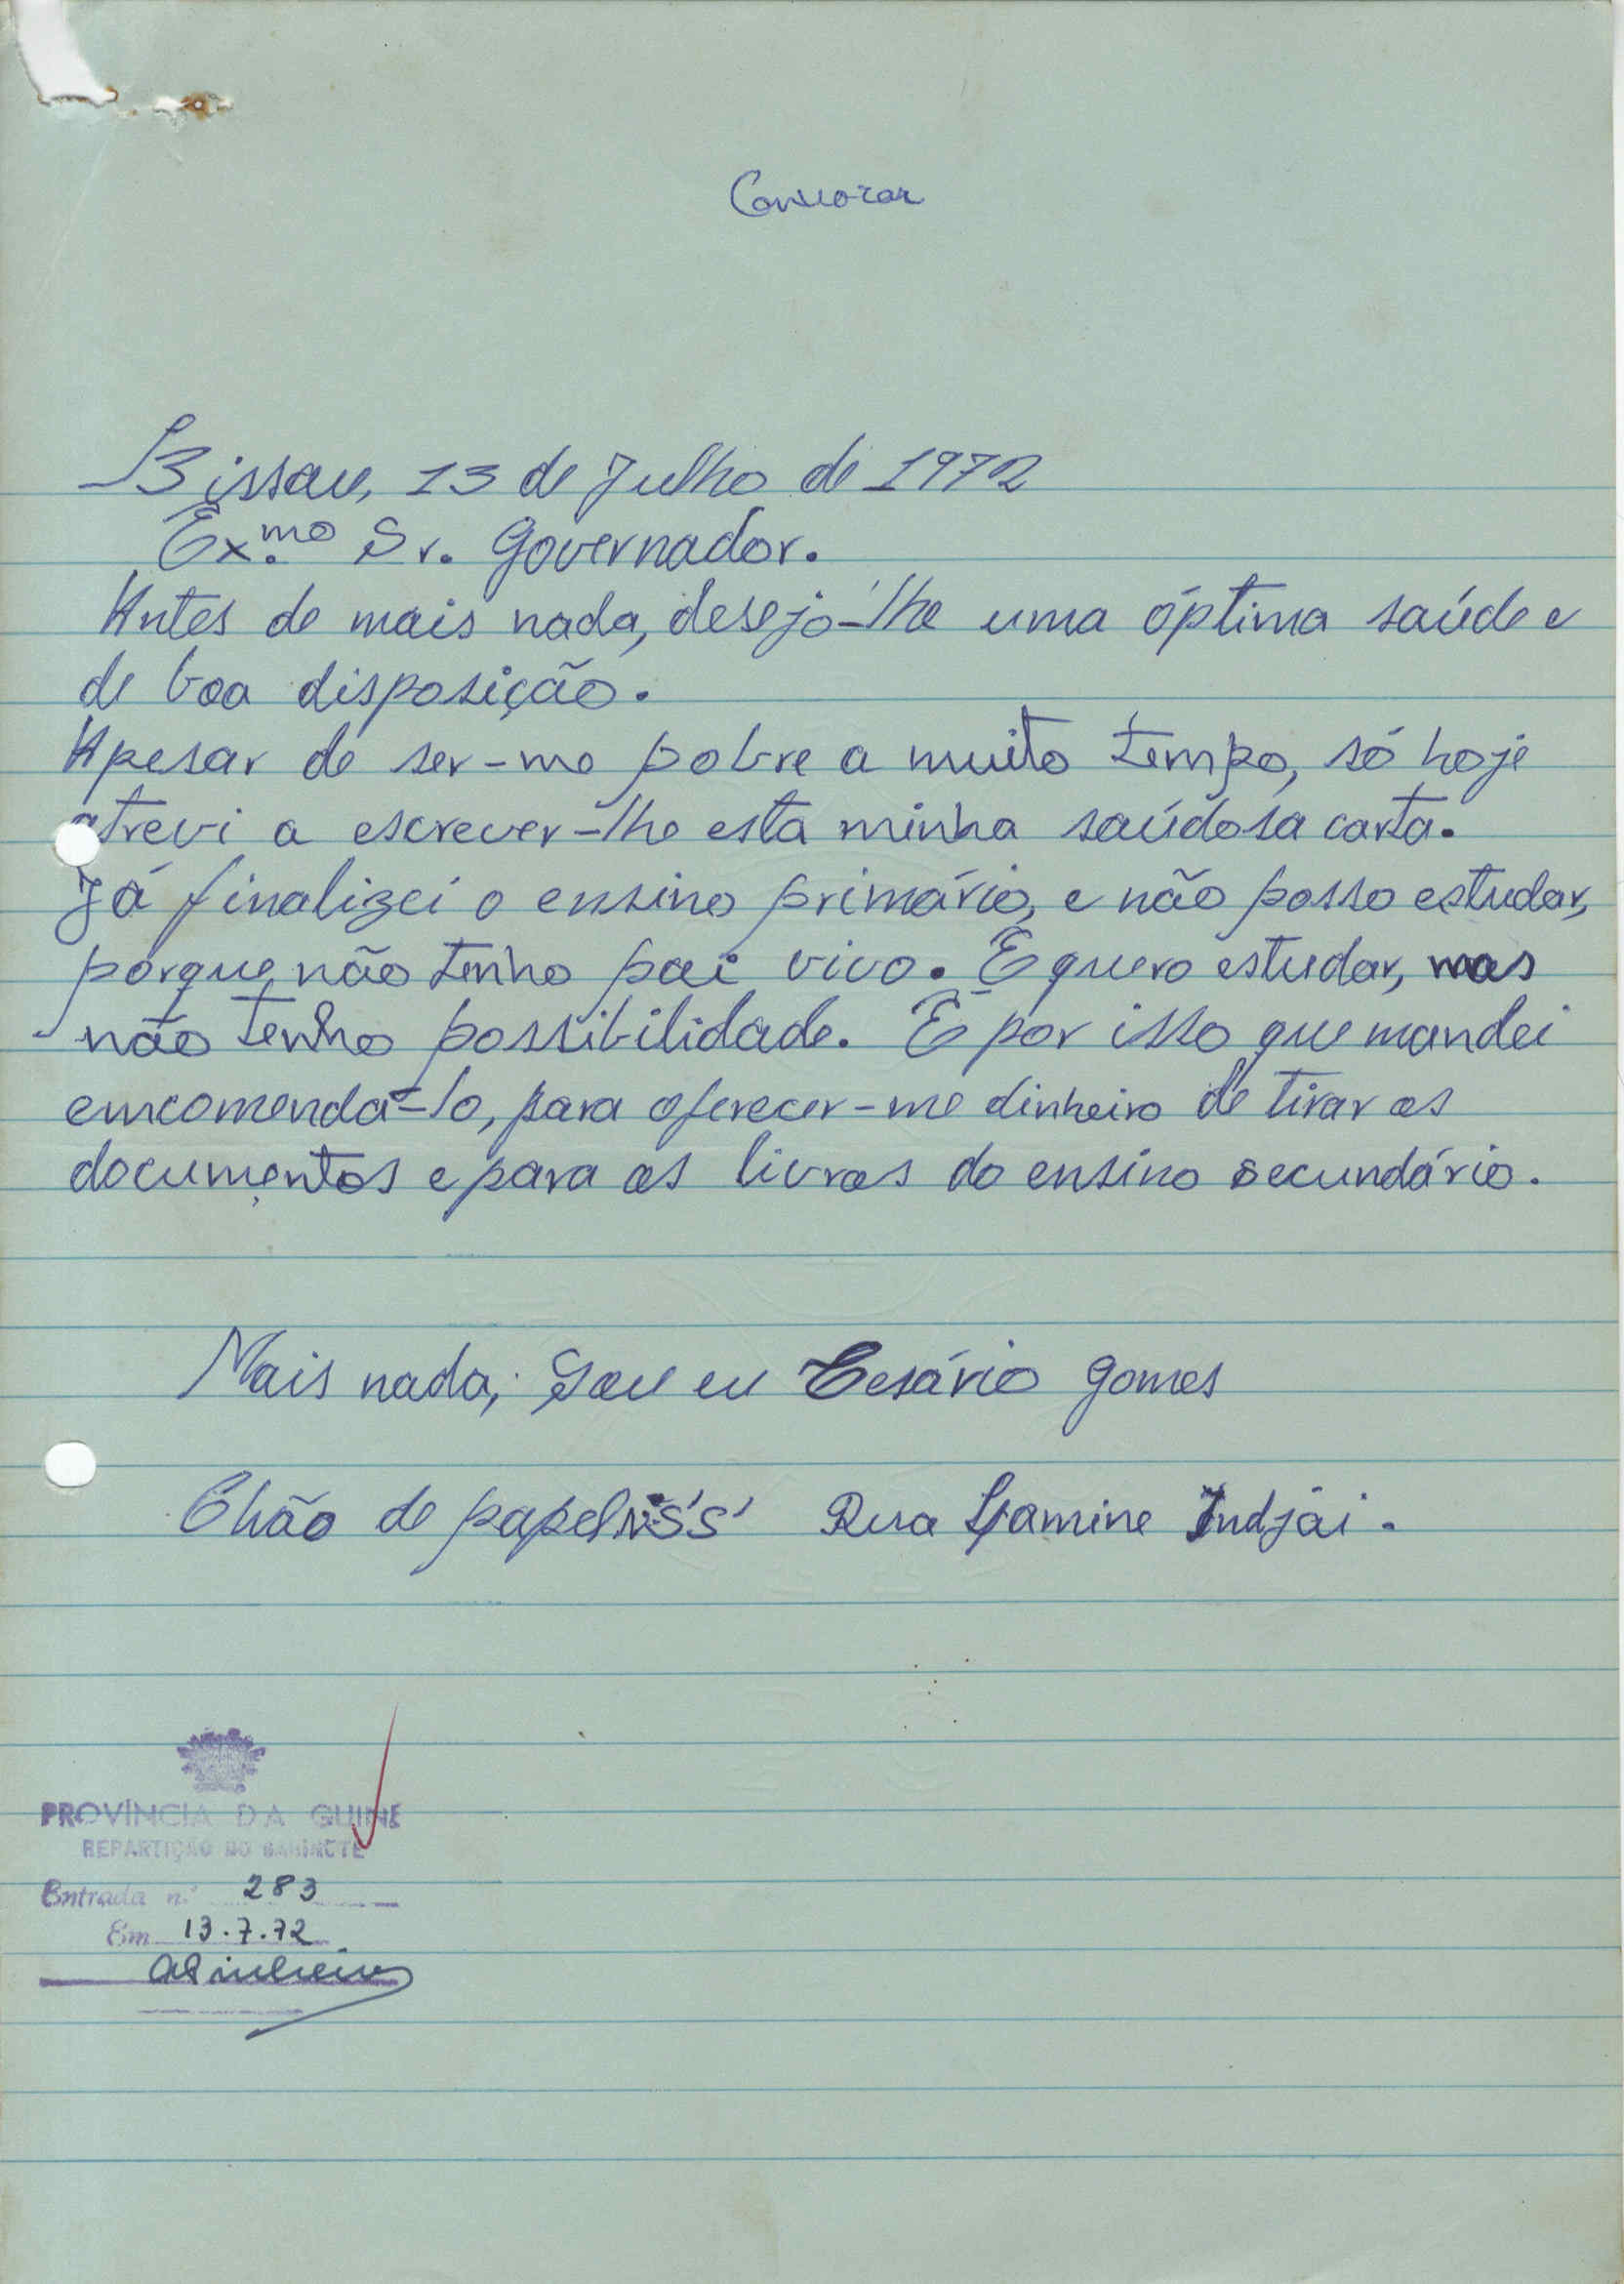 Convocar
Bissau, 13 de Julho de 1972
Ex.mo Sr. Governador.
Antes de mais nada, desejo-lhe uma óptima saúde e
de boa disposição.
Apesar de ser-me pobre a muito tempo, só hoje
atrevi a escrever-lhe esta minha saúdosa carta.
Já finalizei o ensino primário, e não posso estudar,
porque não tenho pai vivo. E quero estudar, mas
não tenho possibilidade. É por isso que mandei
emcomendá-lo, para oferecer-me dinheiro de tirar os
documentos e para os livros do ensino secundário.
Mais nada, Sou eu Cesário Gomes
Chão de Rua Lamine Indjái.
PROVÍNCIA DA GUINÉ
REPARTIÇÃO DO GABINETE
Entrada n.º 283
Em 13.7.72